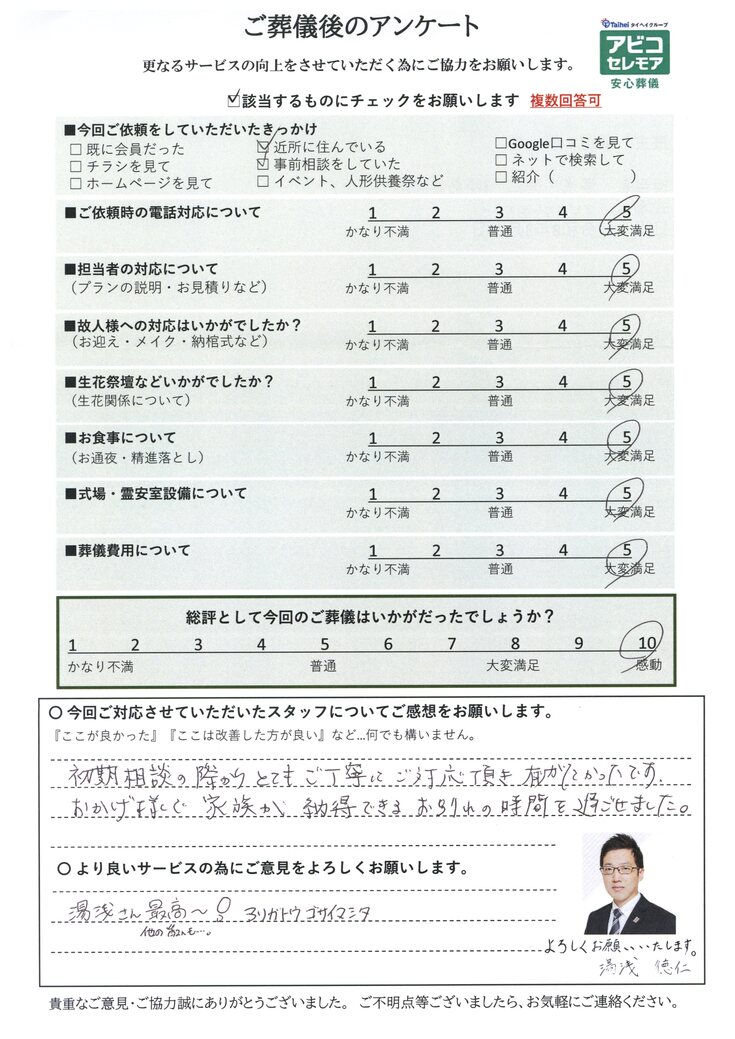 ご葬儀後のアンケート
Taihei タイヘイグループ
アビコ
セレモア
安心葬儀
更なるサービスの向上をさせていただく為にご協力をお願いします。
☑該当するものにチェックをお願いします 複数回答可
■今回ご依頼をしていただいたきっかけ
□ 既に会員だった ☑近所に住んでいる □Google口コミを見て
□ チラシを見て ☑事前相談をしていた □ ネットで検索して
□ ホームページを見て □ イベント、人形供養祭など □ 紹介（ ）
■ご依頼時の電話対応について 1 2 3 4 5
かなり不満 普通 大変満足
■担当者の対応について 1 2 3 4 5
（プランの説明・お見積りなど） かなり不満 普通 大変満足
■故人様への対応はいかがでしたか？ 1 2 3 4 5
（お迎え・メイク・納棺式など） かなり不満 普通 大変満足
■生花祭壇などいかがでしたか？ 1 2 3 4 5
（生花関係について） かなり不満 普通 大変満足
■お食事について 1 2 3 4 5
（お通夜・精進落とし） かなり不満 普通 大変満足
■式場・霊安室設備について 1 2 3 4 5
かなり不満 普通 大変満足
■葬儀費用について 1 2 3 4 5
かなり不満 普通 大変満足
総評として今回のご葬儀はいかがだったでしょうか？
1 2 3 4 5 6 7 8 9 10
かなり不満 普通 大変満足 感動
〇 今回ご対応させていただいたスタッフについてご感想をお願いします。
『ここが良かった』『ここは改善した方が良い』など…何でも構いません。
初期相談の際からとてもご丁寧にご対応頂き有がたかったです。
おかげ様で家族が納得できるお別れの時間を過ごせました。
〇 より良いサービスの為にご意見をよろしくお願いします。
湯浅さん最高〜！ アリガトウゴザイマシタ
他の皆さんも…。
よろしくお願いいたします。
湯浅 徳仁
貴重なご意見・ご協力誠にありがとうございました。 ご不明点等ございましたら、お気軽にご連絡ください。